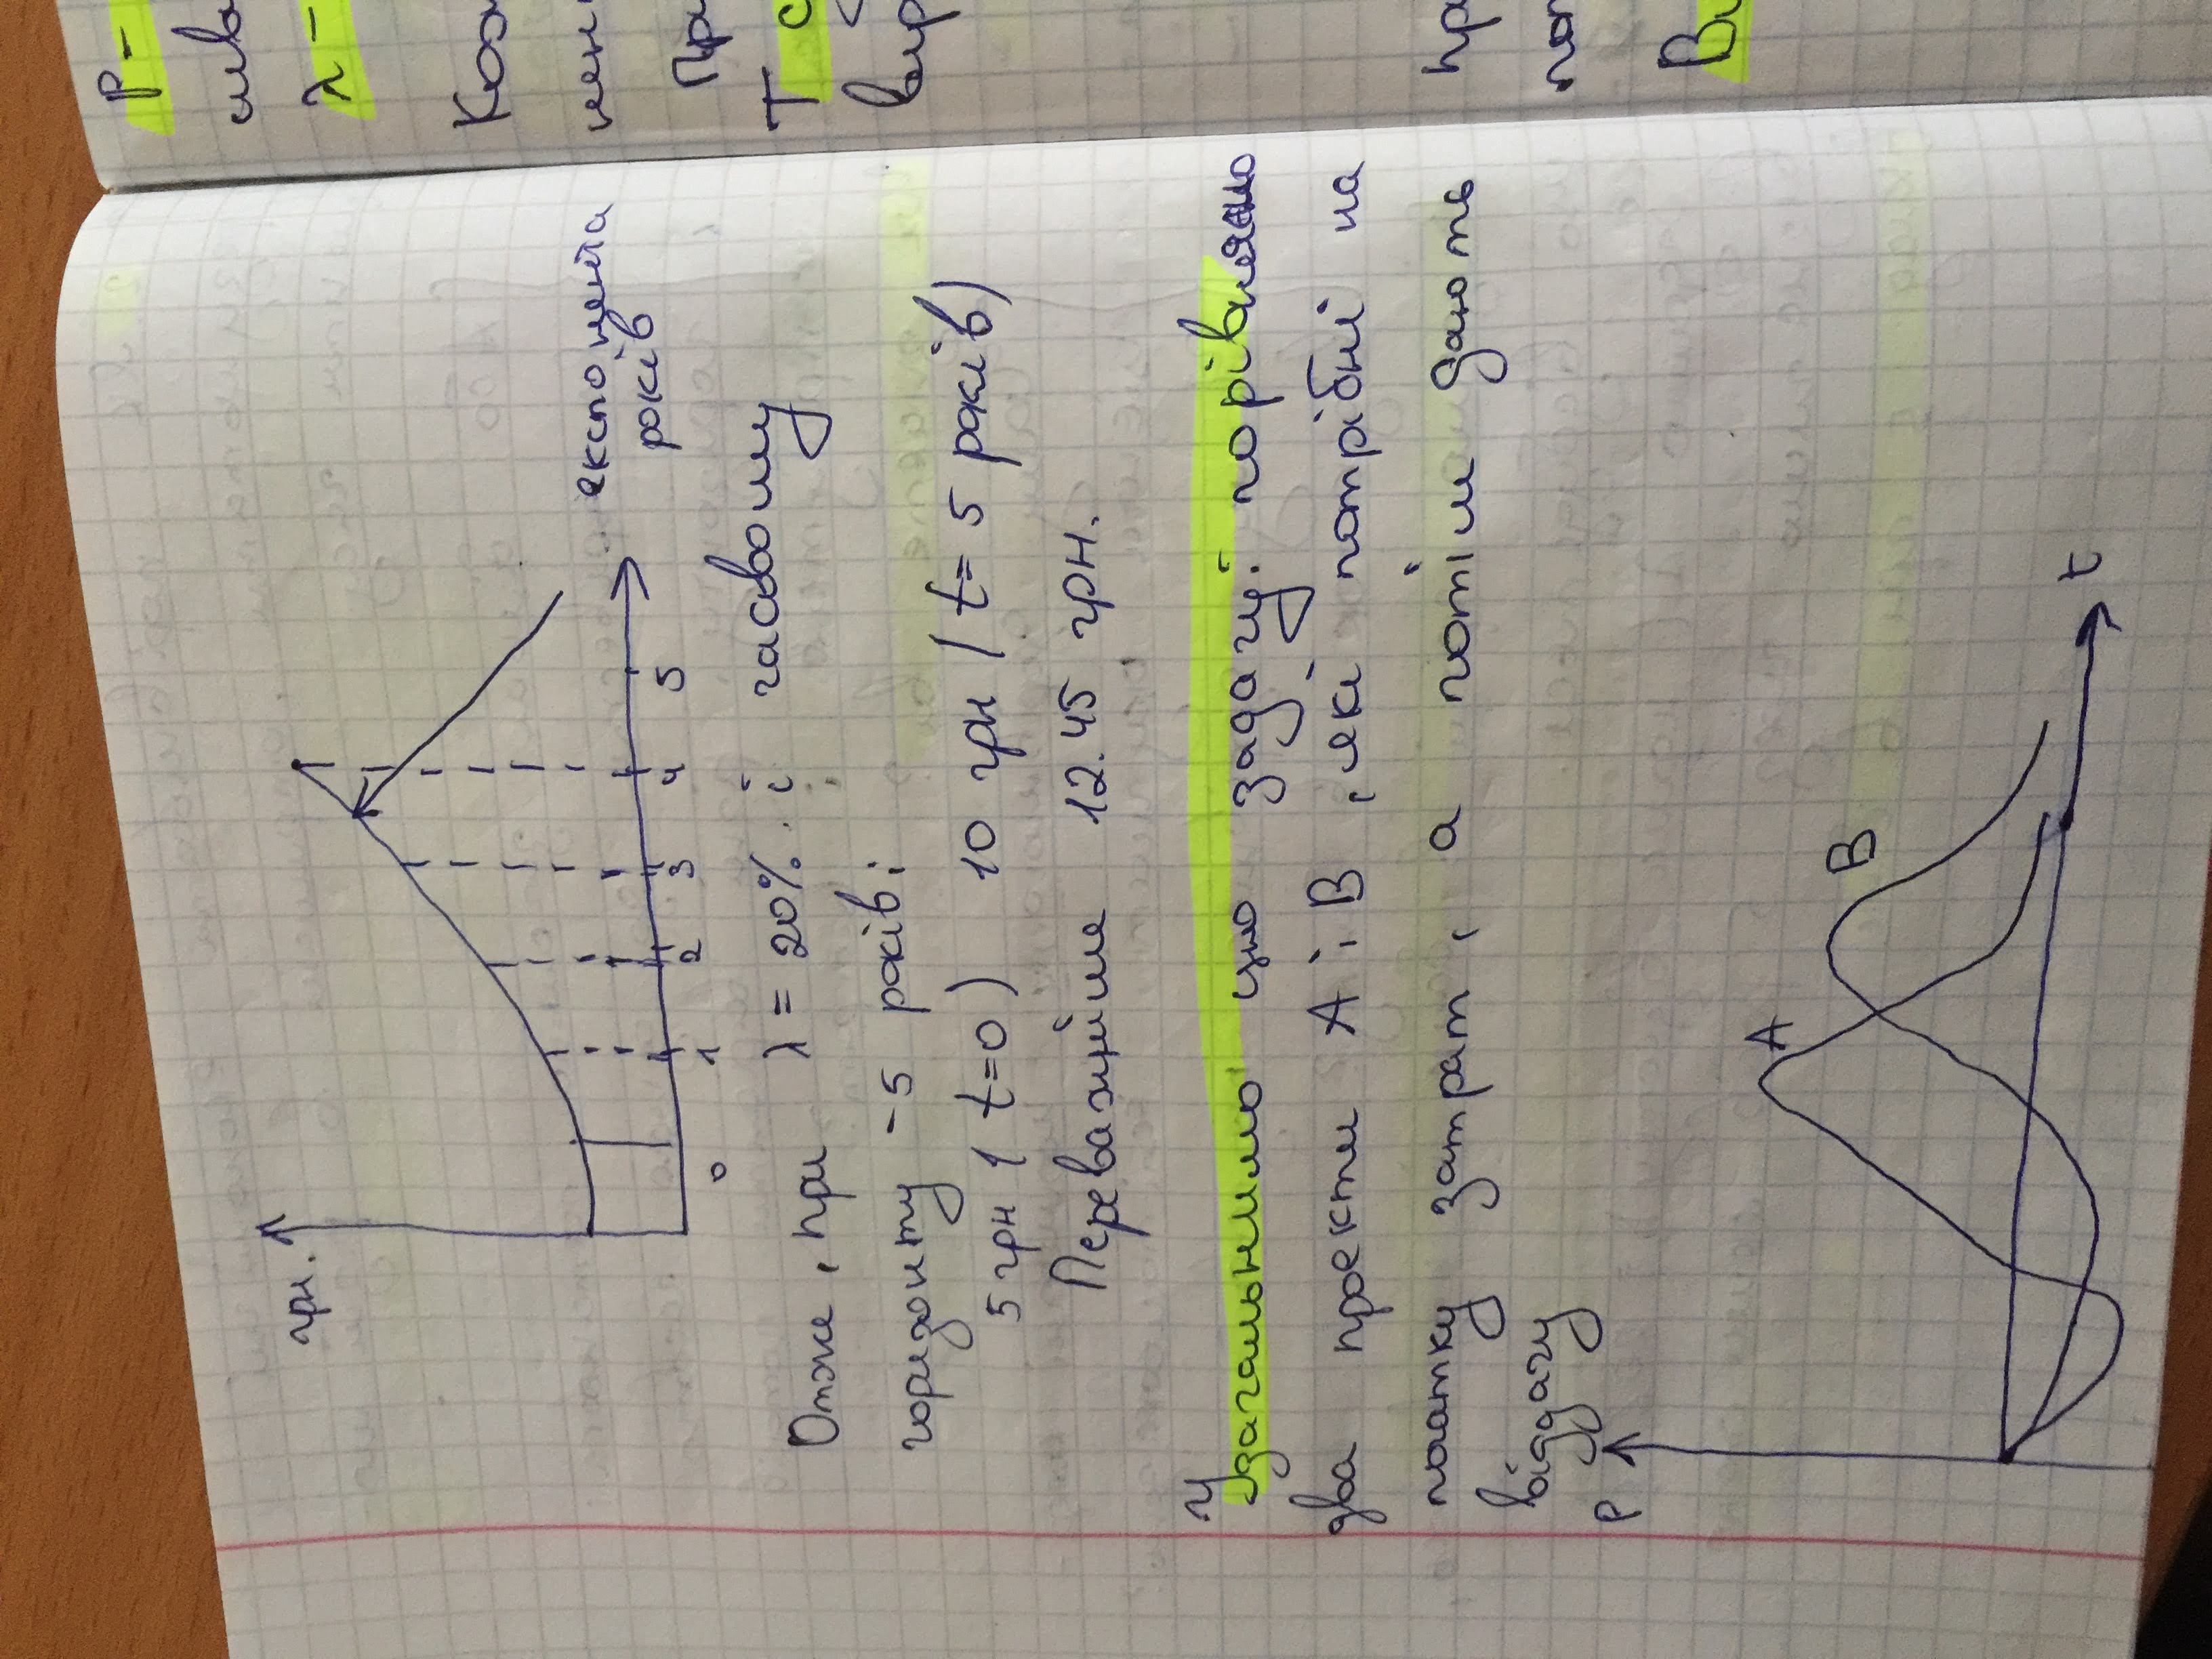 грн.
експонента
років
0 1 2 3 4 5
Отже, при λ = 20% і часовому
горизонту - 5 років:
5 грн ( t=0 ) 10 грн ( t= 5 років)
Переважніше 12.45 грн.
Узагальнимо цю задачу: порівняно
два проекти A і B, які потрібні на
початку затрат, а потім дають
віддачу
P
A
B
t
P -
λ -
Т